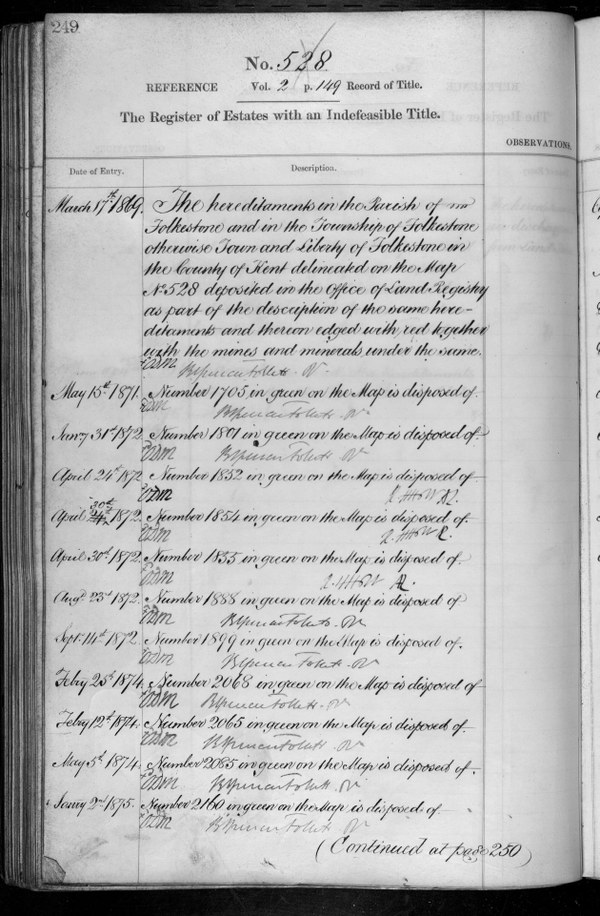 249
No. 528
REFERENCE Vol. 2 p. 149 Record of Title.
The Register of Estates with an Indefeasible Title.
OBSERVATIONS.
Date of Entry. Description.
March 17th 1869. The hereditaments in the Parish of
Folkestone and in the Township of Folkestone
otherwise Town and Liberty of Folkestone in
the County of Kent delineated on the Map
No. 528 deposited in the Office of Land Registry
as part of the description of the same here-
ditaments and thereon edged with red together
with the mines and minerals under the same.
May 15th 1871. Number 1705 in green on the Map is disposed of.
Jany 31st 1872. Number 1801 in green on the Map is disposed of
April 24th 1872 Number 1852 in green on the Map is disposed of
30th
April 24th 1872. Number 1854 in green on the Map is disposed of.
April 30th 1872. Number 1855 in green on the Map is disposed of
Augt 23d 1872. Number 1888 in green on the Map is disposed of
Sept. 14th 1872. Number 1899 in green on the Map is disposed of.
Feby 25th 1874. Number 2068 in green on the Map is disposed of
Feby 12th 1874. Number 2065 in green on the Map is disposed of.
May 5th 1874. Number 2085 in green on the Map is disposed of.
Jany 2nd 1875. Number 2160 in green on the Map is disposed of.
(Continued at page 250)